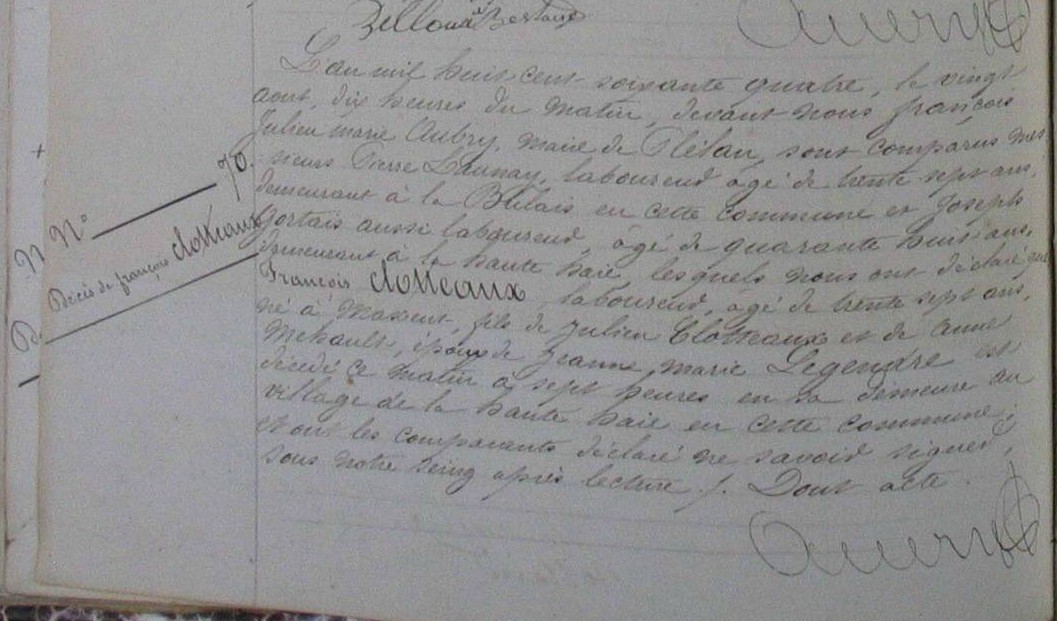 L'an mil huit cent soixante quatre, le vingt
aout, dix heures du matin, devant nous françois
Julien marie Aubry, maire de Plélan, sont comparus mes
sieurs Pierre Launay, laboureur âgé de trente sept ans,
demeurant à la en cette commune et Joseph
gortais aussi laboureur, âgé de quarante huit ans,
demeurant à la haute haie, lesquels nous ont déclaré que
François Clotteaux, laboureur, âgé de trente sept ans,
né à Maxent, fils de Julien Clotteaux et de anne
Mehault, époux de Jeanne marie Legendre est
décédé ce matin à sept heures en sa demeure au
village de la haute haie en cette commune;
et ont les comparants déclaré ne savoir signer,
sous notre seing après lecture ./. Dont acte.
N° 70.
Décès de françois Clotteaux